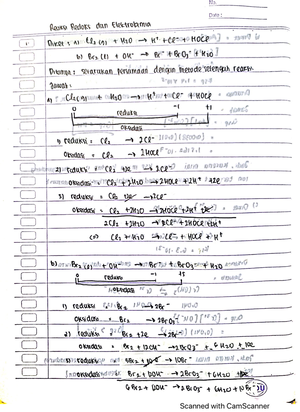 No.
Date:
Reaksi Redoks dan Elektrokimia
1 Diket : a) Cl2 (g) + H2O → H+ + Cl- + HOCl
b) Br2 (l) + OH- → Br- + BrO3- + H2O
Ditanya : setarakan persamaan dengan metode setengah reaksi
Jawab :
a) Cl2(g) + H2O → H+ + Cl- + HOCl
0 -1 +1
reduksi
oksidasi
1) reduksi = Cl2 → 2Cl-
oksidasi = Cl2 → 2HOCl
2) reduksi = Cl2 + 2e → 2Cl-
oksidasi = Cl2 + 2H2O → 2HOCl + 2H+ + 2e
3) reduksi = Cl2 + 2e → 2Cl-
oksidasi = Cl2 + 2H2O → 2HOCl + 2H+ + 2e
2Cl2 + 2H2O → 2Cl- + 2HOCl + 2H+
Cl2 + H2O → Cl- + HOCl + H+
b) Br2 (l) + OH- → Br- + BrO3- + H2O
0 -1
reduksi
oksidasi
1) reduksi = Br2 → 2Br-
oksidasi = Br2 → 2BrO3-
2) reduksi = Br2 + 2e → 2Br-
oksidasi = Br2 + 12OH- → 2BrO3- + 6H2O + 10e
3) reduksi = → 10Br-
oksidasi = Br2 + 12OH- → 2BrO3- + 6H2O + 10e
6Br2 + 12OH- → 2BrO3- + 6H2O + 10Br-
Scanned with CamScanner